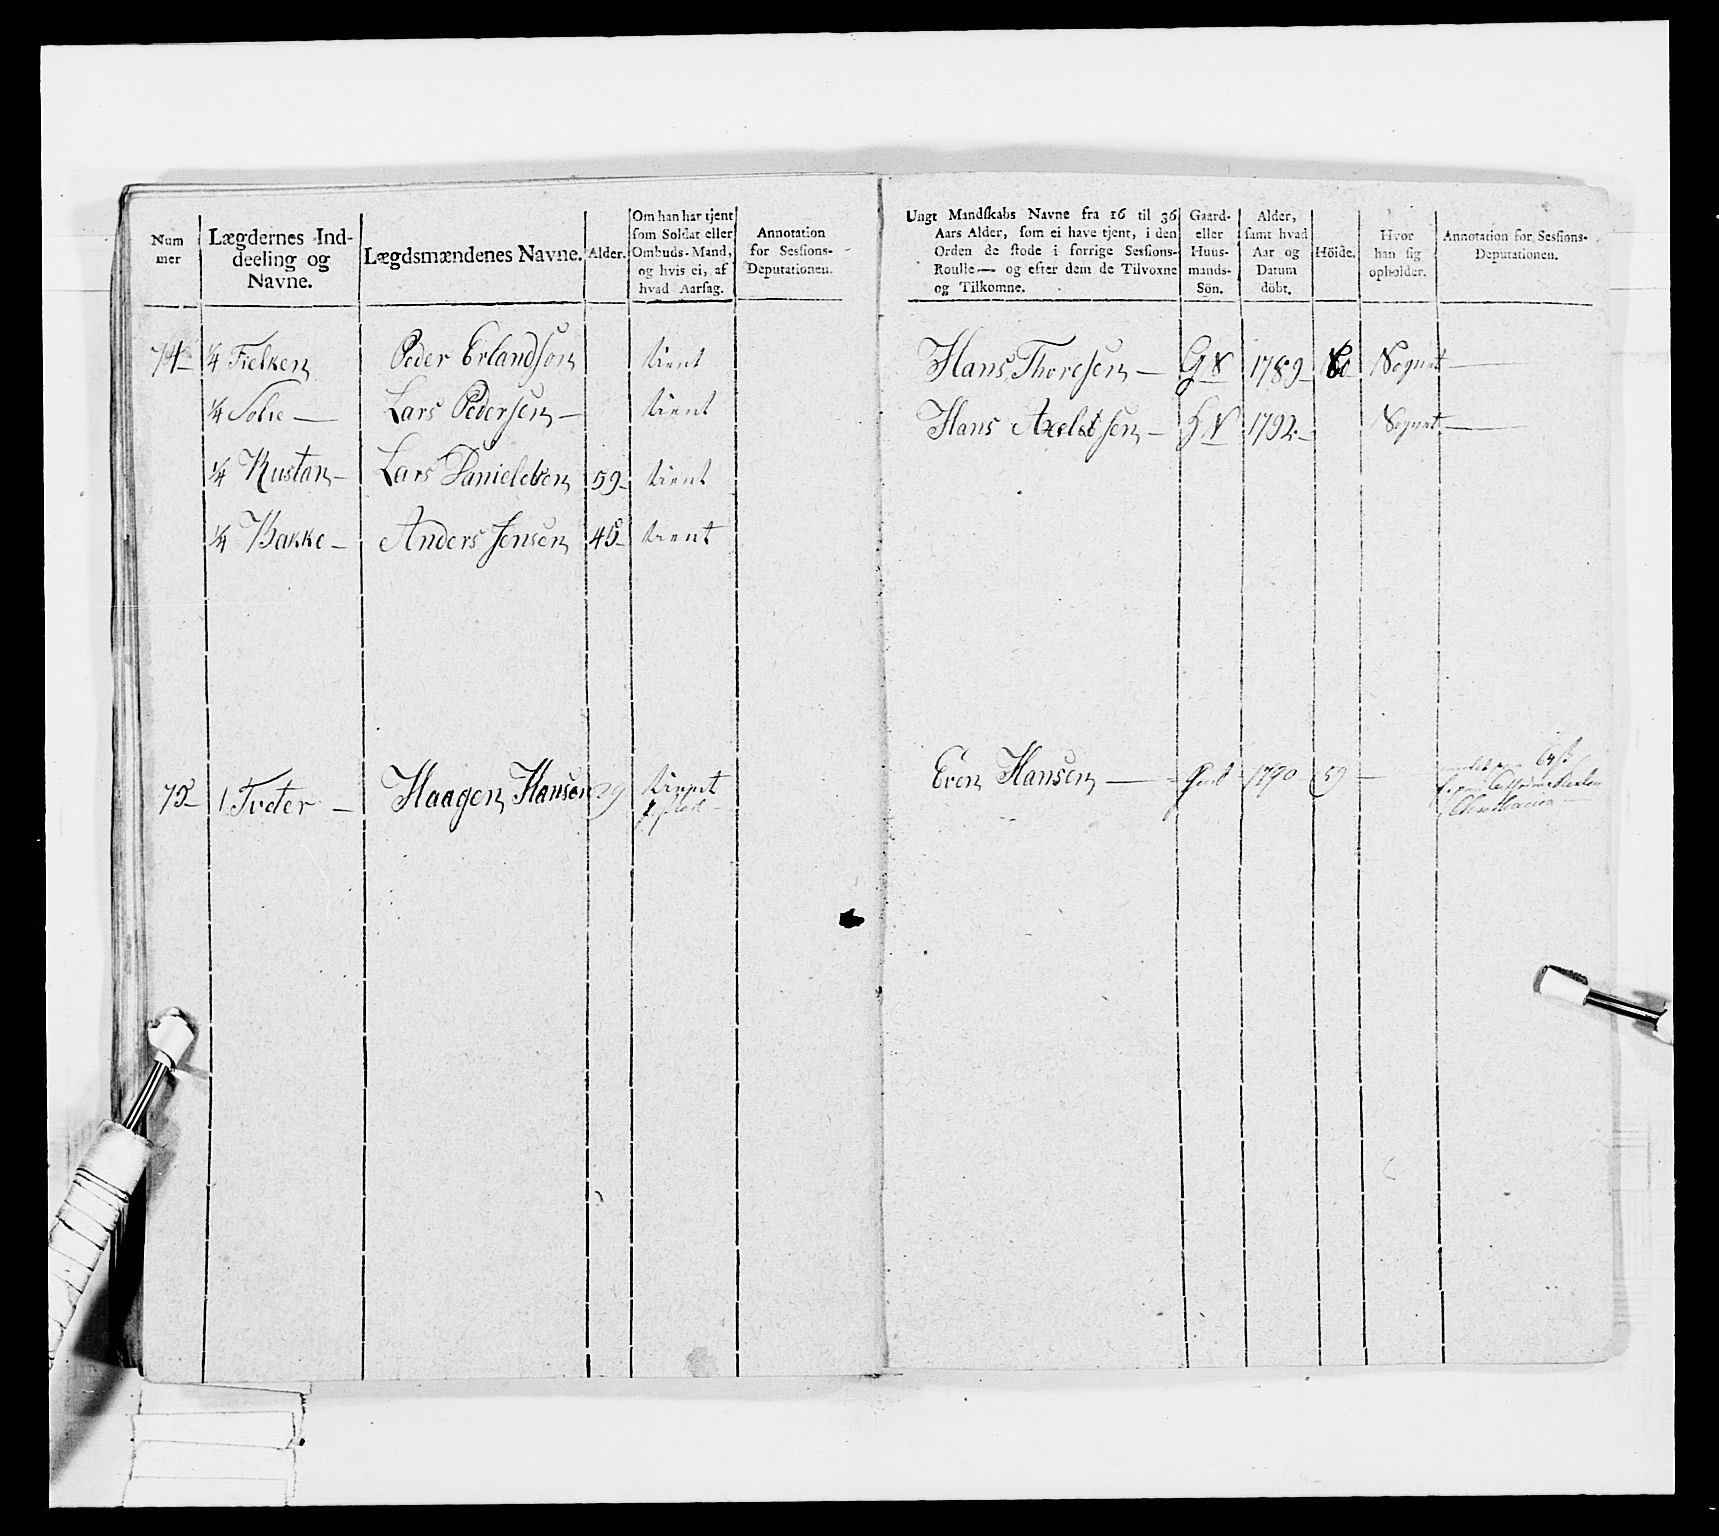 Num
mer
Lægdernes Ind-
deeling og
Navne.
Lægdsmændenes Navne.
Alder.
Om han har tjent
som Soldat eller
Ombuds-Mand,
og hvis ei, af
hvad Aarsag.
Annotation
for Sessions-
Deputationen.
74 ¼ Fielken Peder Erlandsøn tient
¼ Solie Lars Pedersen tient
¼ Rustan Lars Danielsen 59 tient
¼ Bakke Anders Jensen 45 tient
75 1 Tveter Haagen Hansen 29 tienet
Ungt Mandskabs Navne fra 16 til 36
Aars Alder, som ei have tjent, i den
Orden de stode i forrige Sessions-
Roulle — og efter dem de Tilvoxne
og Tilkomne.
Gaard-
eller
Huus-
mands-
Sön.
Alder,
samt hvad
Aar og
Datum
döbt.
Höide.
Hvor
han sig
opholder.
Annotation for Sessions-
Deputationen.
Hans Thoresen — G S 1789 60 Sognet
Hans Axelsen — H S 1792 Sognet
Even Hansen — 1790 59
Christiania